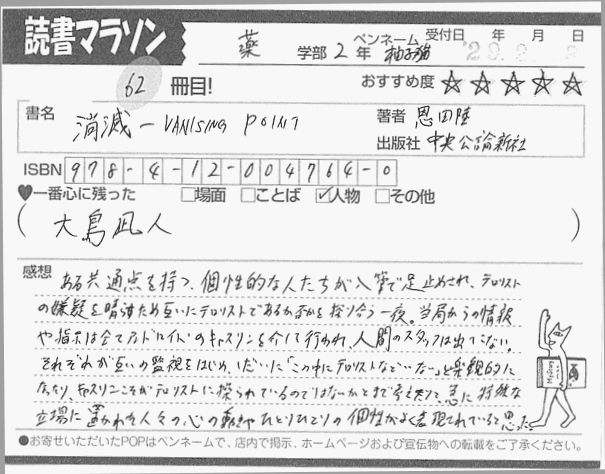 読書マラソン
薬 学部 2 年 ペンネーム 柚子猫 受付日 年 月 日
'29.9.9
62 冊目! おすすめ度 ☆☆☆☆☆
書名 消滅 - VANISING POINT
著者 恩田陸
出版社 中央公論新社
ISBN 978-4-12-004764-0
♥一番心に残った □場面 □ことば ☑人物 □その他
( 大島凪人 )
感想
ある共通点を持つ、個性的な人たちが入管で足止めされ、テロリスト
の嫌疑を晴らすため互いにテロリストであるか否かを探り合う一夜。当局からの情報
や指示は全てアンドロイドのキャスリンを介して行われ、人間のスタッフは出てこない。
それぞれが互いの監視をはじめ、しだいに「この中にテロリストなど…いな…」と楽観的に
なったり、キャスリンこそがテロリストに操られているのではないかとまで考え
立場に置かれた人々の心の動きやひとりひとりの個性がよく表現されていると思った
●お寄せいただいたPOPはペンネームで、店内で掲示、ホームページおよび宣伝物への転載をご了承ください。